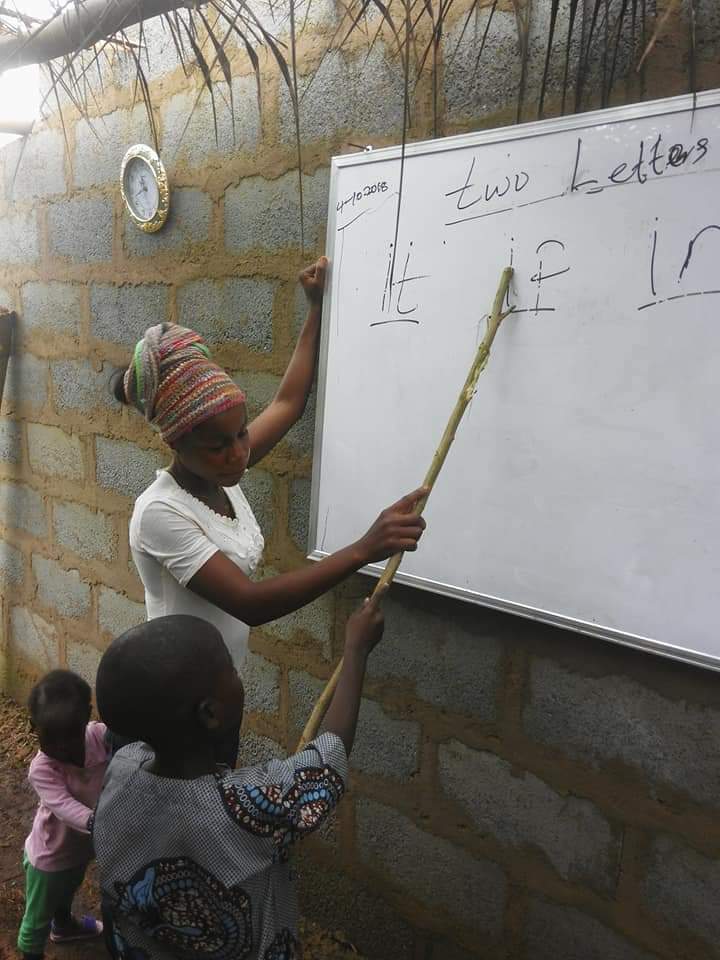 4-10-2018
two Letters
it if in